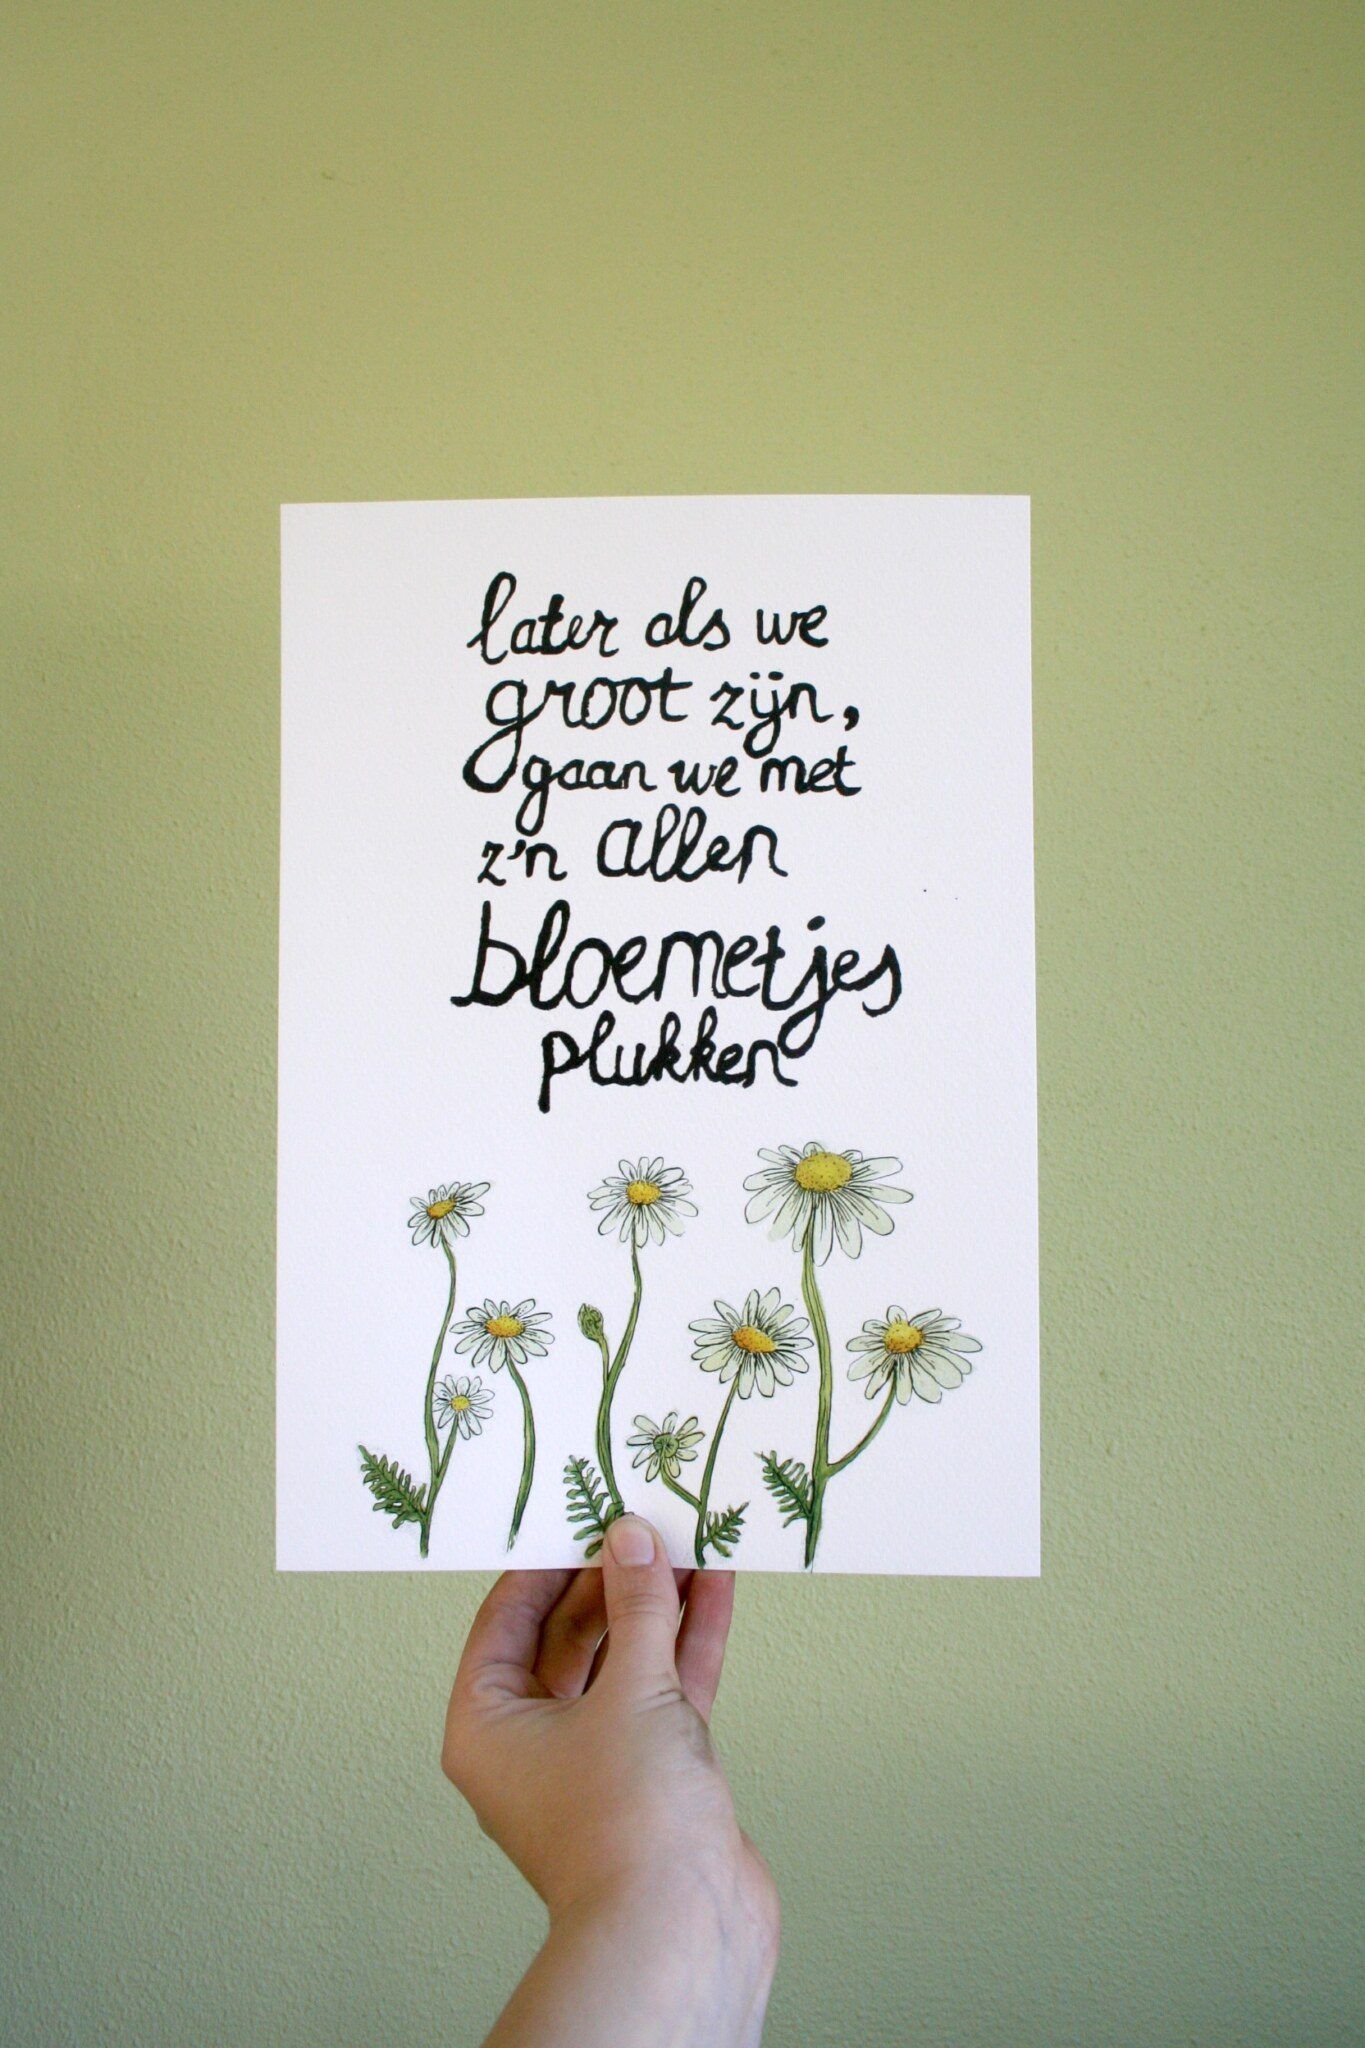 later als we
groot zijn,
gaan we met
z'n allen
bloemetjes
plukken